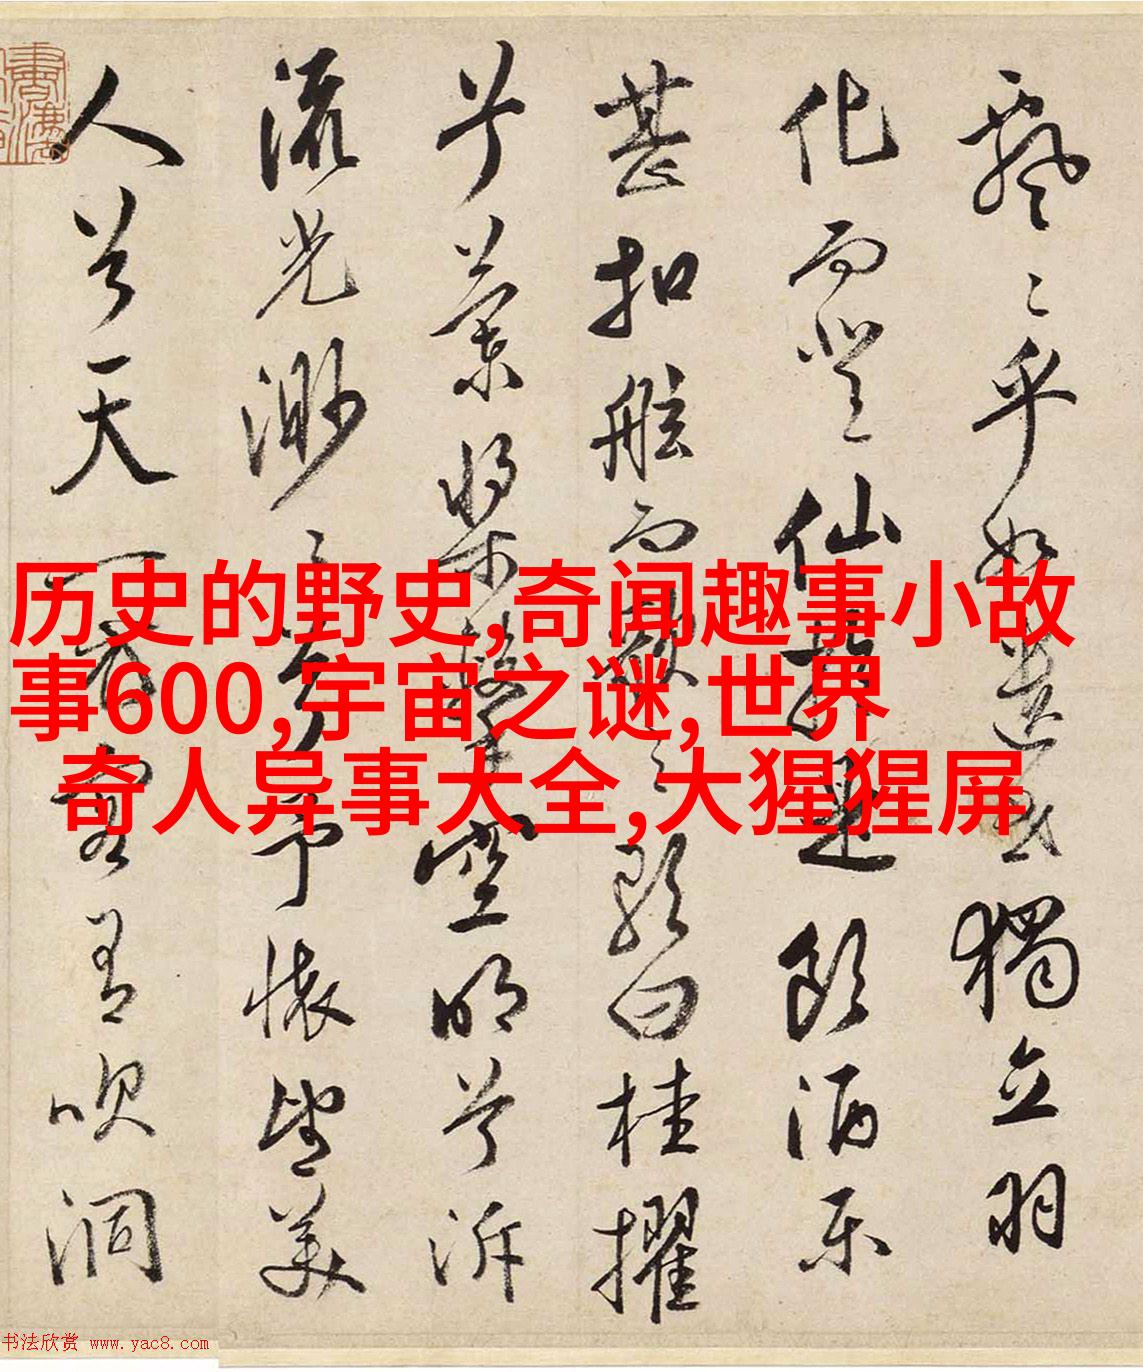 飄〻乎如遺世獨立羽
化而登仙於是飲酒樂
甚扣舷而歌之歌曰桂擢
兮蘭槳擊空明兮泝
流光渺〻兮予懷望美
人兮天一方客有吹洞
历史的野史,奇闻趣事小故
事600,宇宙之谜,世界
奇人异事大全,大猩猩屏
书法欣赏 www.yac8.com